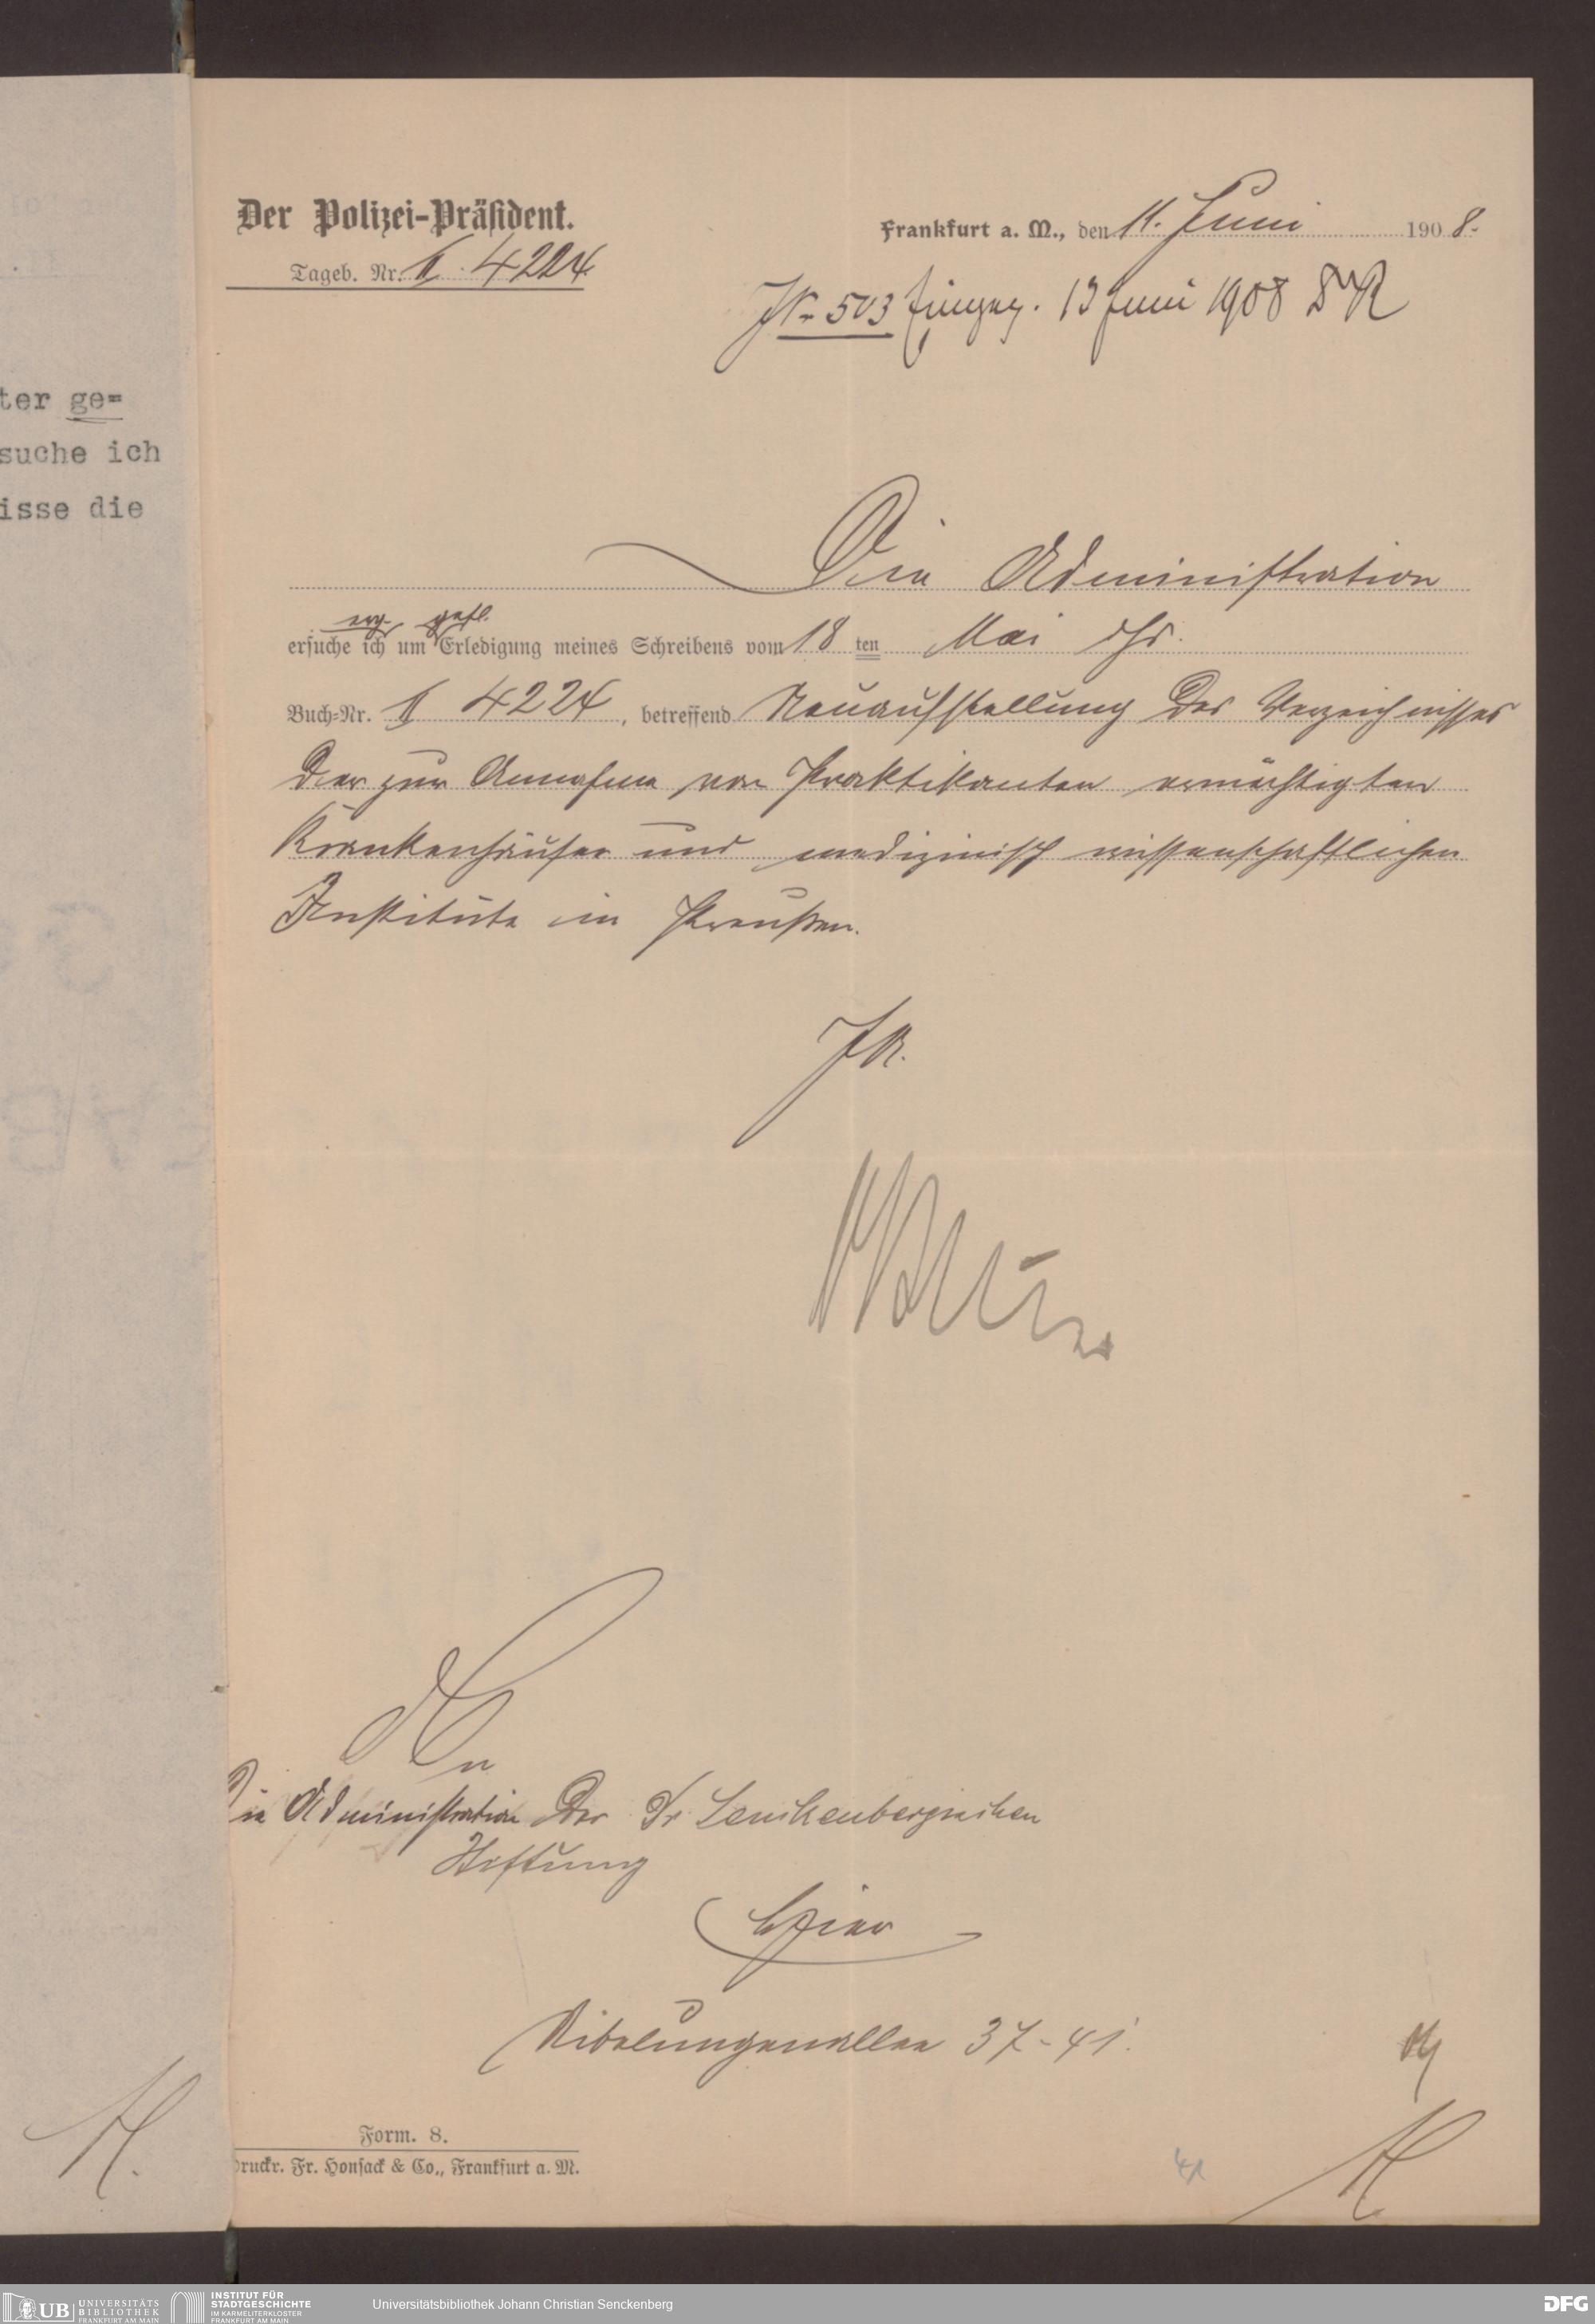 ter ge=
suche ich
isse die
Der Polizei-Präsident.
Frankfurt a. M., den 11. Juni 1908.
Tageb. Nr. II. 4224
JN. 503 Eingeg. 13 Juni 1908
Die Administration
erg. gefl.
ersuche ich um Erledigung meines Schreibens vom 18 ten Mai d. Js.
Buch-Nr. II 4224, betreffend Neuaufstellung des Verzeichnisses
der zur Annahme von Praktikanten ermächtigten
Krankenhäuser und medizinisch wissenschaftlichen
Institute in Preußen.
An
die Administration der Dr Senckenbergischen
Stiftung
Hier
Nibelungenallee 37-41.
Form. 8.
Druckr. Fr. Honsack & Co., Frankfurt a. M.
UB UNIVERSITÄTS
BIBLIOTHEK
FRANKFURT AM MAIN
INSTITUT FÜR
STADTGESCHICHTE
IM KARMELITERKLOSTER
FRANKFURT AM MAIN
Universitätsbibliothek Johann Christian Senckenberg
DFG